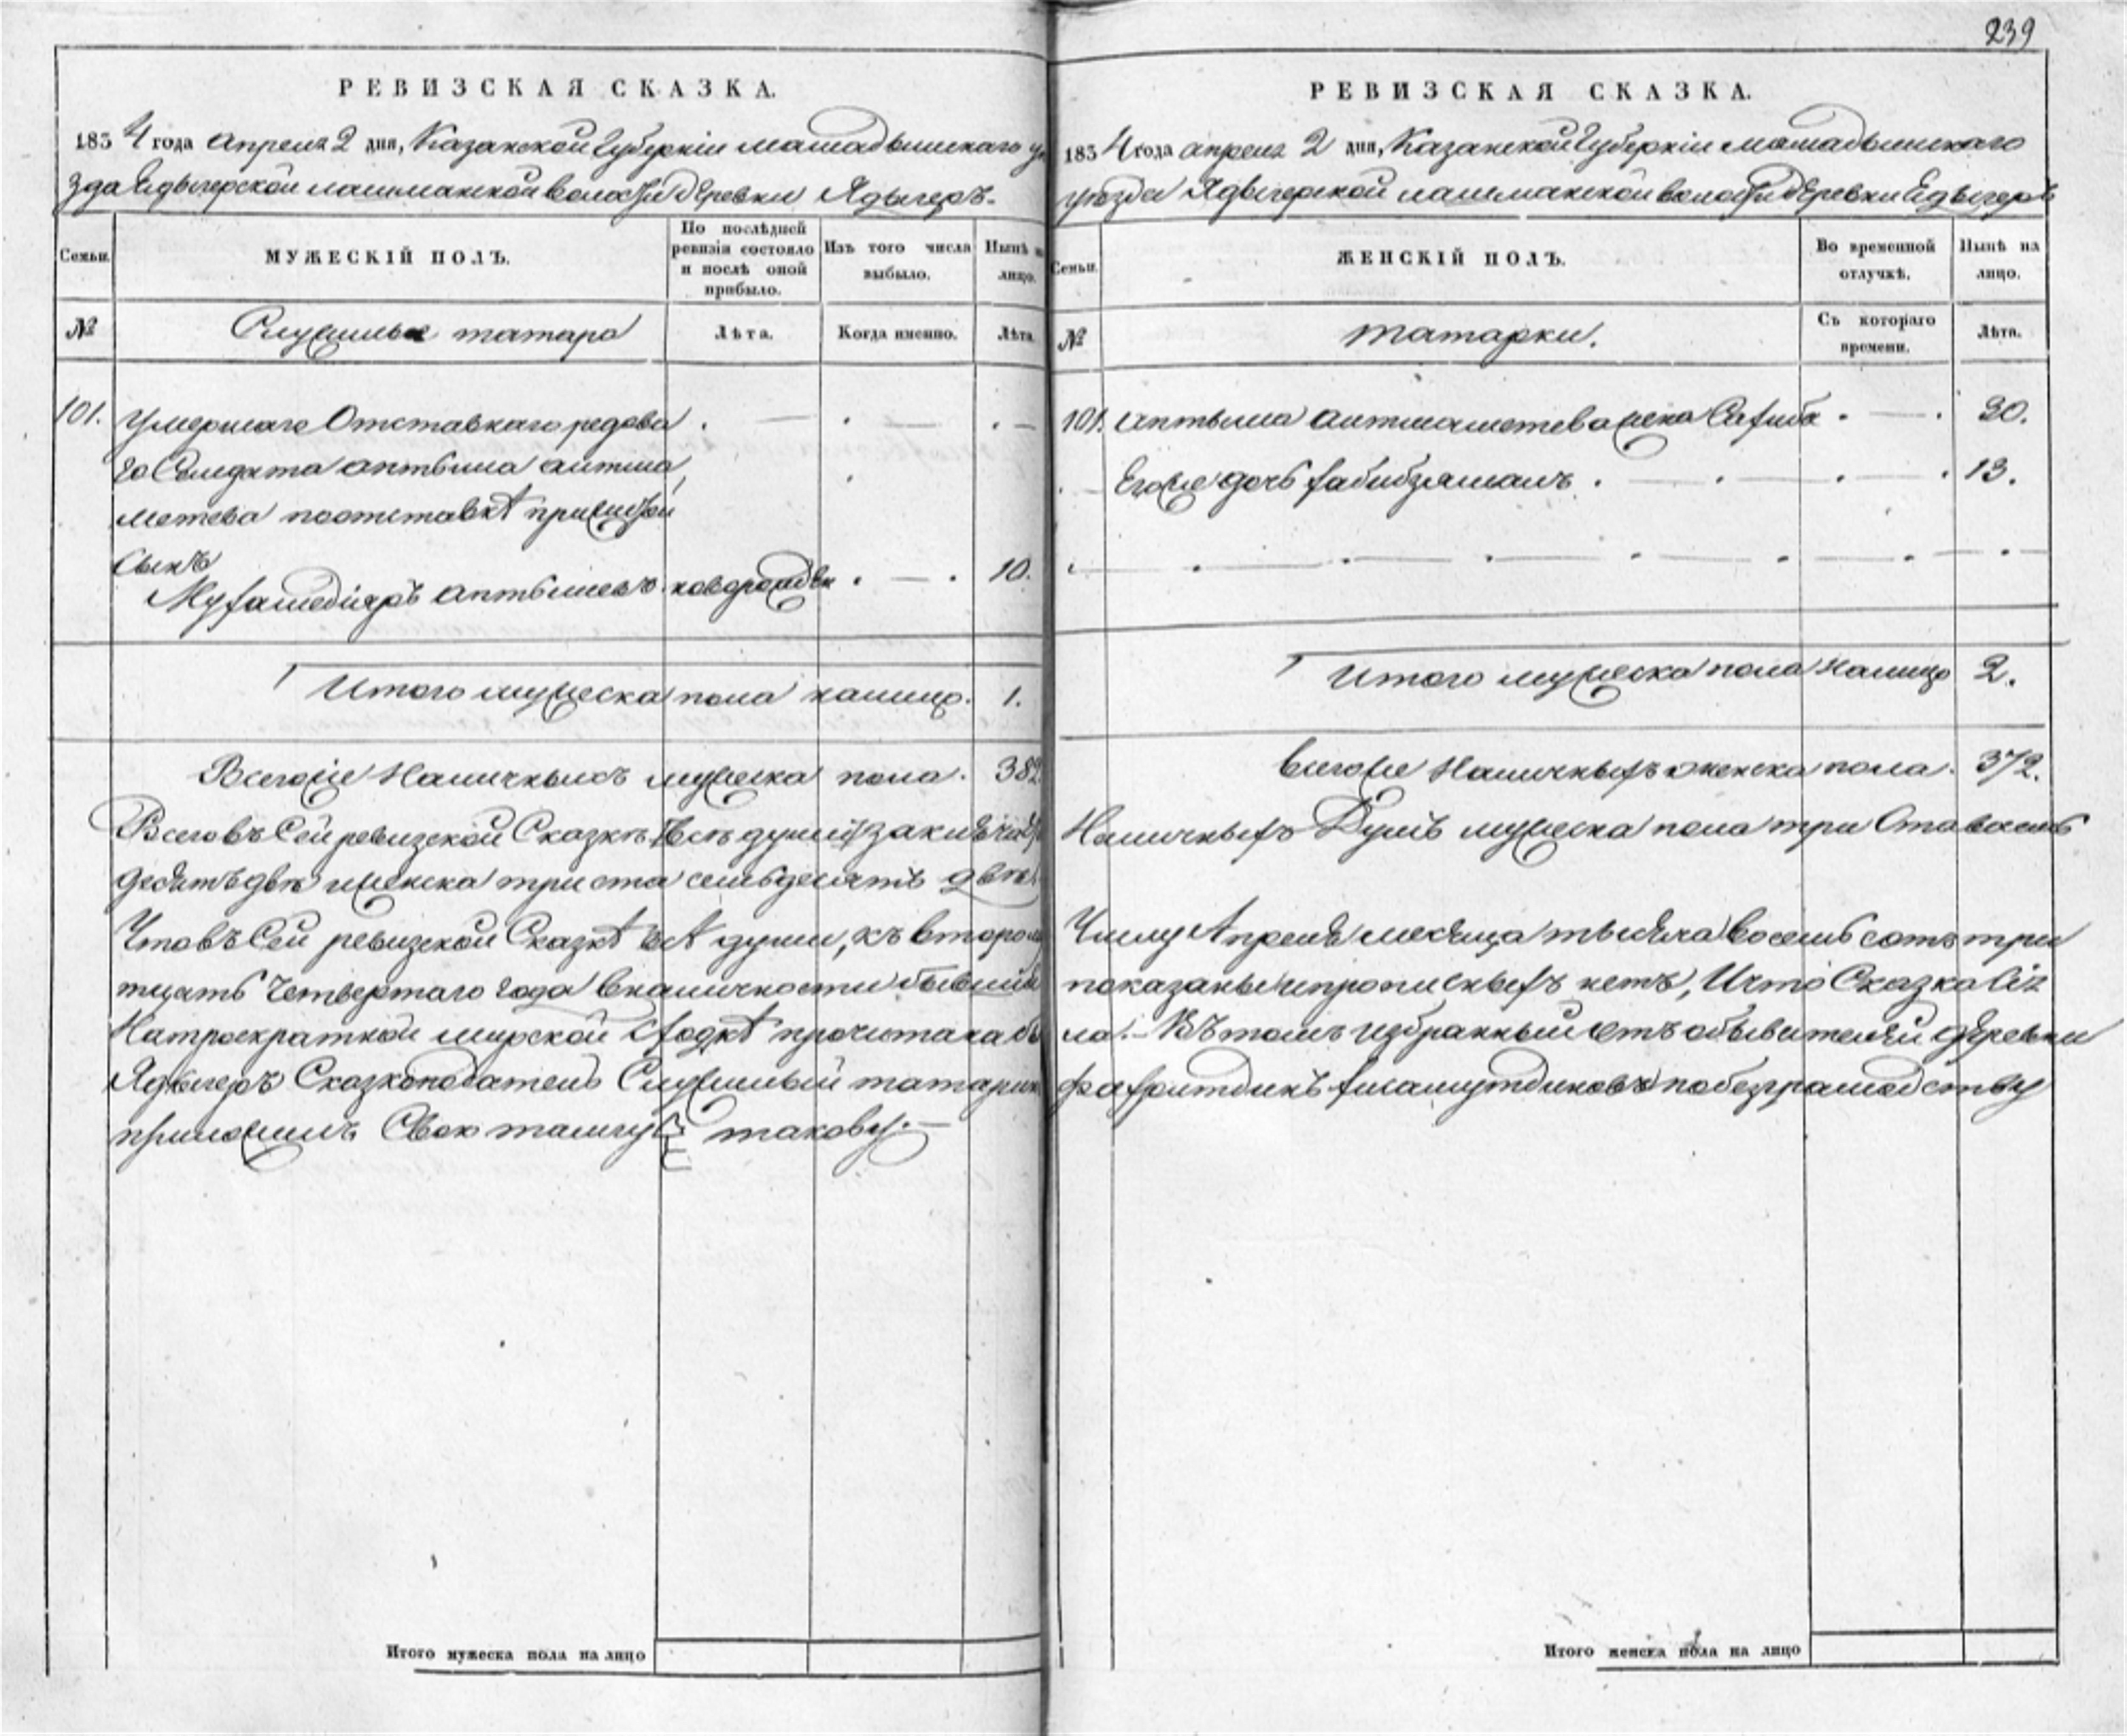 239
РЕВИЗСКАЯ СКАЗКА.
1834 года апреля 2 дня, Казанской Губернiи мамадышскаго уѣ
зда Едыгерской лашманской волости деревни Ядыгеръ.
Семьи.
МУЖЕСКIЙ ПОЛЪ.
По послѣдней ревизiи состояло и послѣ оной прибыло.
Изъ того числа выбыло.
Нынѣ на лицо.
№
Служилыя татара
Лѣта.
Когда именно.
Лѣта.
101. Умершаго Отставнаго редова
го Солдата аптыша аитма
метева поотставкѣ прижитой
Сынъ
Музамедiяръ аптышевъ новорожден 10.
Итого мужеска пола налицо. 1.
Всегоже Наличныхъ мужеска пола. 382
Всеговъ Сей ревизской Сказкѣ
десятъ двѣ женска триста семьдесятъ двѣ
Чтовъ Сей ревизской Сказкѣ всѣ души, къ второму
тцать Четвертаго года вналичности бывшии
Натроекратной мирской сходкѣ прочитана бы
Ядыгеръ Сказкоподатель Служилый татаринъ
приложилъ Свою тамгу такову.
Итого мужеска пола на лицо
РЕВИЗСКАЯ СКАЗКА.
1834 года апреля 2 дня, Казанской Губернiи мамадышскаго
уѣзда Ядыгерской лашманской волости деревни Едыгеръ
Семьи.
ЖЕНСКIЙ ПОЛЪ.
Во временной отлучкѣ.
Нынѣ на лицо.
№
татарки.
Съ котораго времени.
Лѣта.
101. аптыша аитмаметева жена 30.
Егоже дочь Хабибзямалъ 13.
Итого мужеска пола Налицо 2.
всегоже Наличныхъ женска пола. 372.
Наличныхъ Душъ мужеска пола три Ста восемь
Числу Апреля месяца тысяча восемь сотъ три
показаны ипрописныхъ нетъ, Ичто Сказка сiя
ла. Въ томъ избранный отъ обывателей деревни
побезграмодству
Итого женска пола на лицо